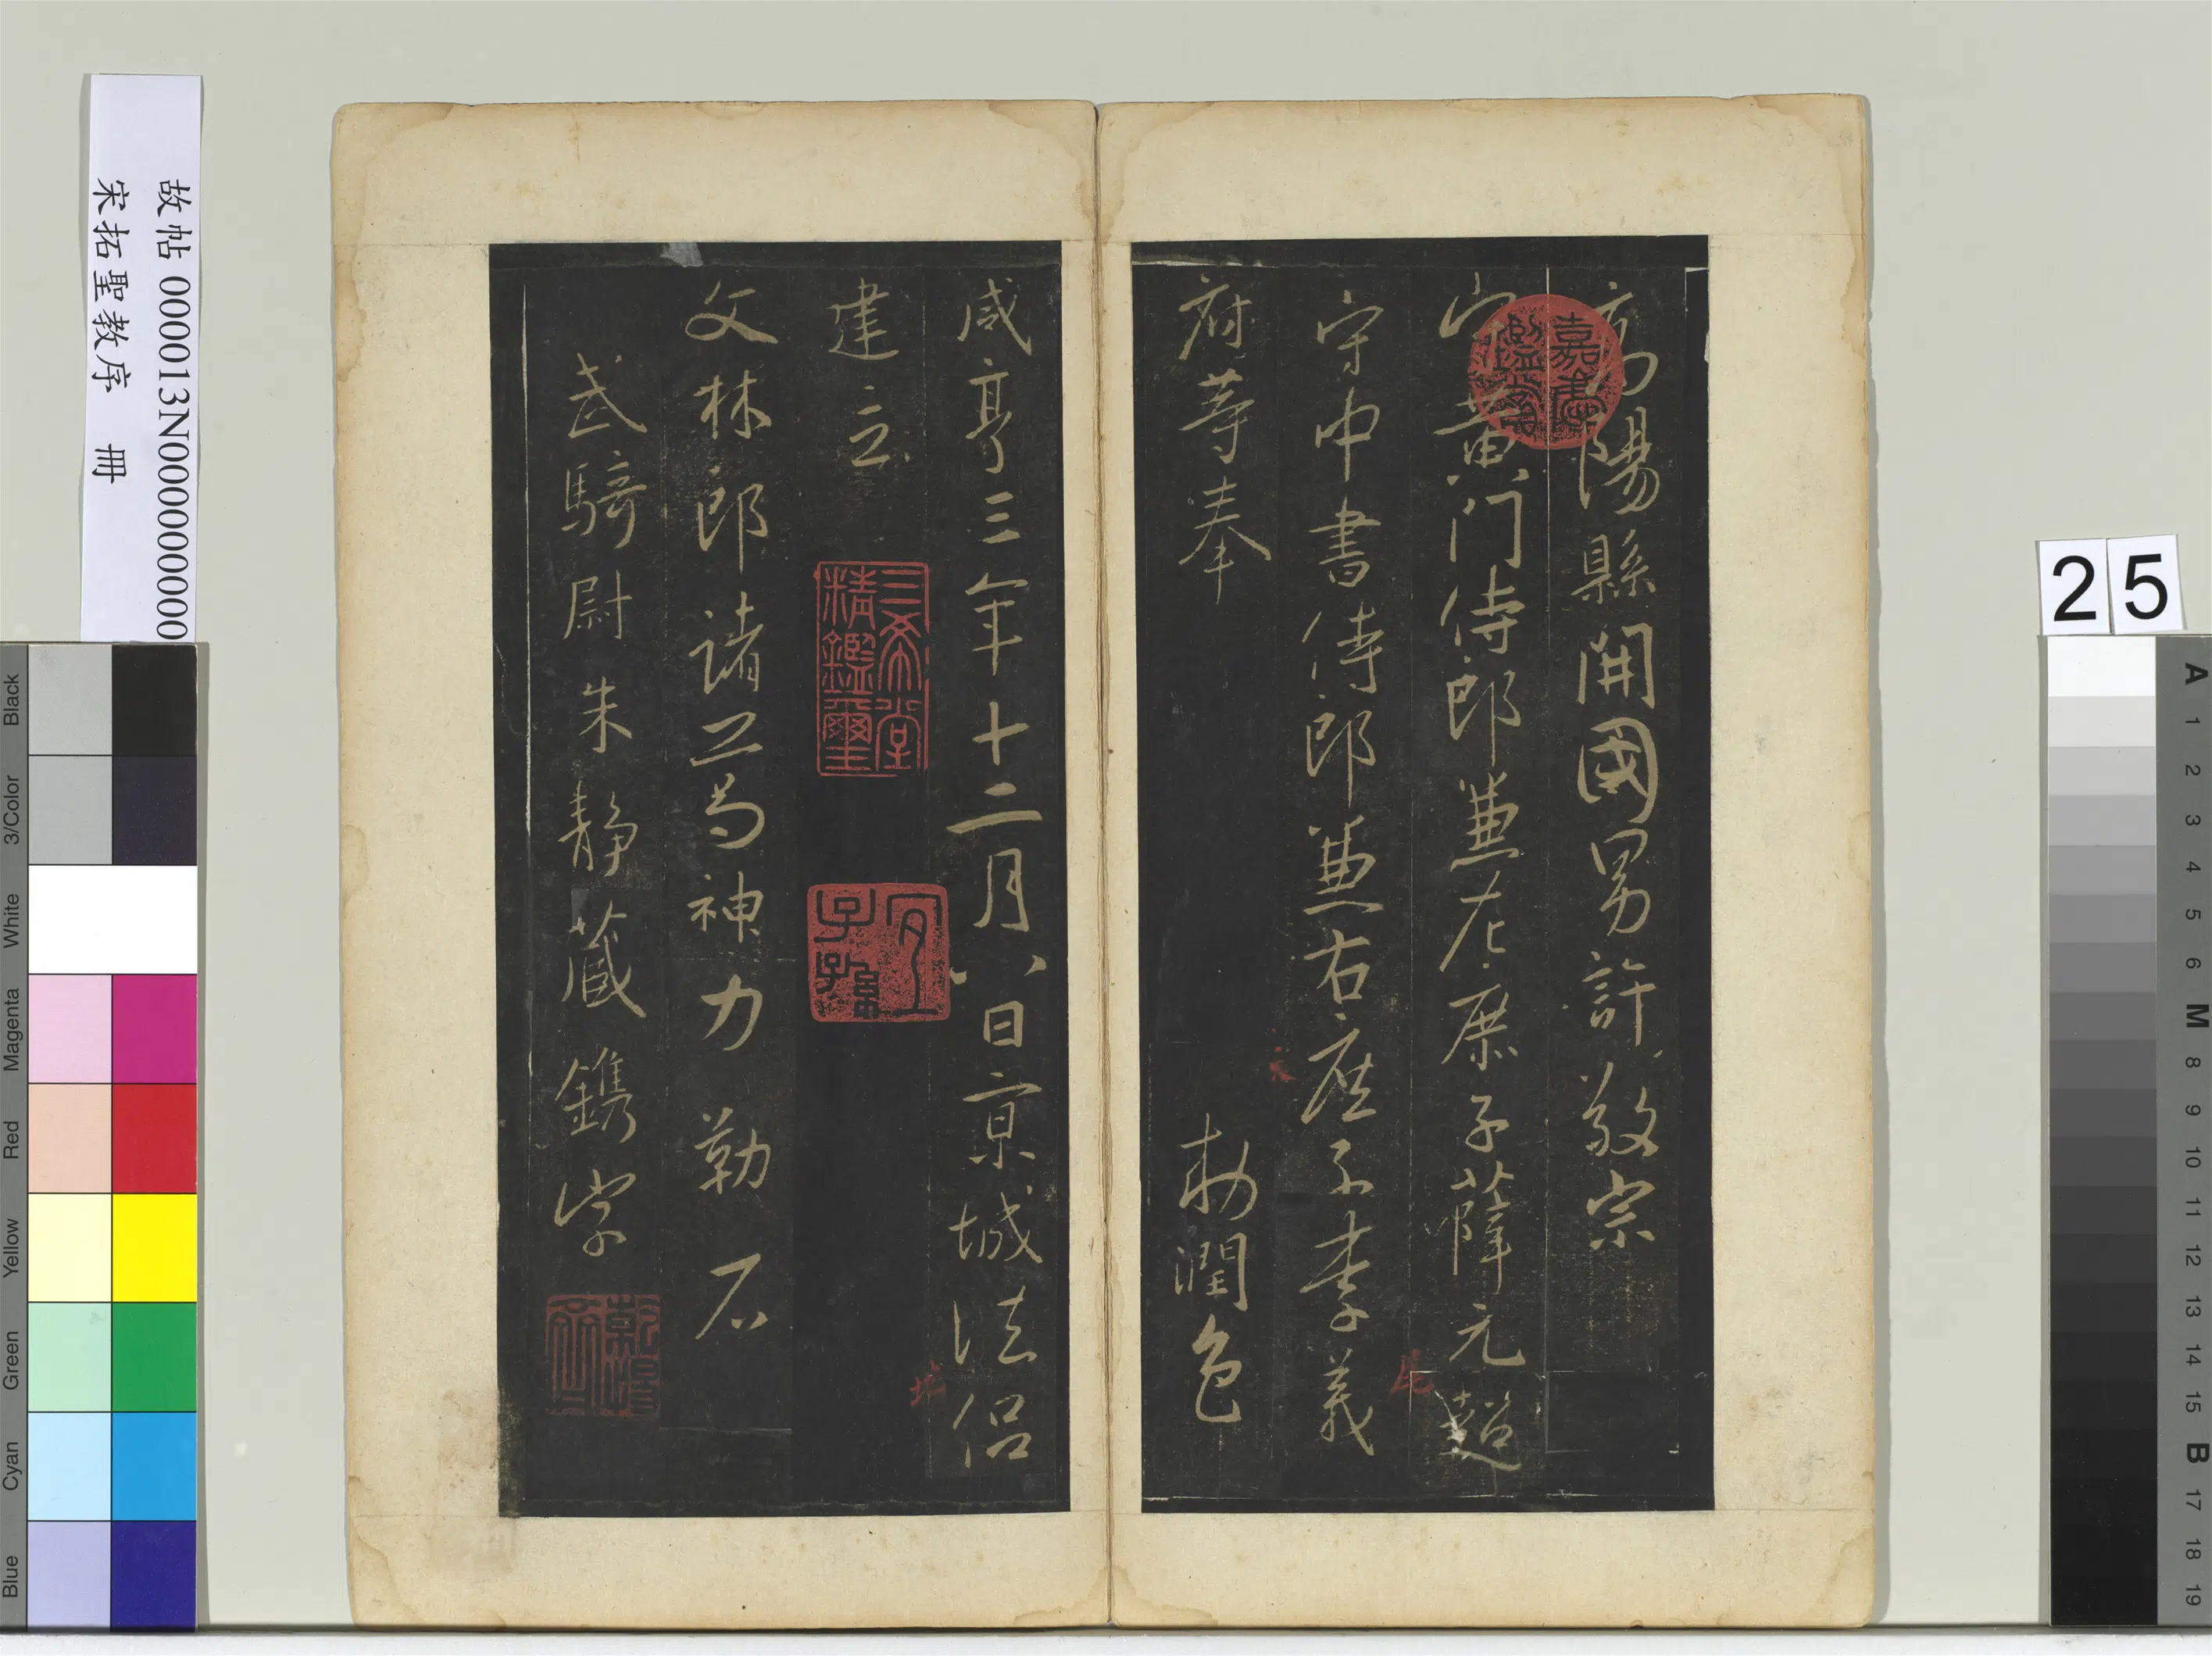 高陽縣開國男許敬宗
守黃門侍郎兼左庶子薛元超
守中書侍郎兼右庶子李義
府等奉
敕潤色
咸亨三年十二月八日京城法侶
建立
文林郎諸葛神力勒石
武騎尉朱靜藏鐫字
嘉慶鑑賞
三希堂精鑑璽
宜子孫
尾
天
地
故帖 000013N000000000
宋拓聖教序 冊
25
Black
3/Color
White
Magenta
Red
Yellow
Green
Cyan
Blue
A
1
2
3
4
5
6
M
8
9
10
11
12
13
14
15
B
17
18
19